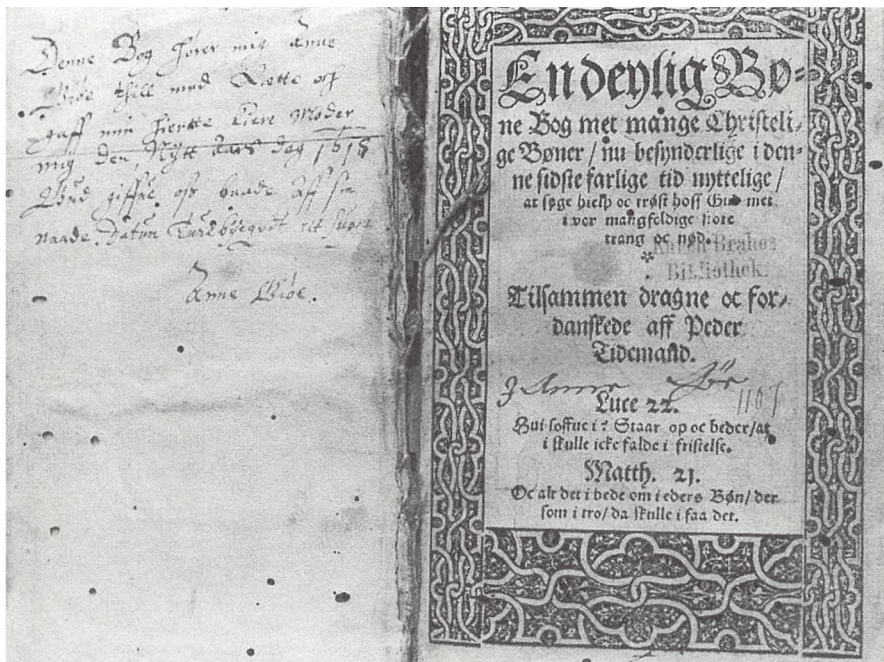 Denne Bog hører mig Anne
Giøe thill med Rette och
gaff min hiertte kiere Moder
mig den, Nytt Aars dag 1618
Gud giffue oss baade aff sin
naade. Datum
Anne Giøe.
En deylig Bø⸗
ne Bog met mange Christeli⸗
ge Bøner / nu besynderlige i den⸗
ne sidste farlige tid nyttelige /
at søge hielp oc trøst hoss Gud met
i vor mangfeldige store
trang oc nød.
Karen Brahes
Bibliothek.
Tilsammen dragne oc for⸗
danskede aff Peder
Tidemand.
Anne
1107
Luce 22.
Hui soffue i? Staar op oc beder / at
i skulle icke falde i fristelse.
Matth. 21.
Oc alt det i bede om i eders Bøn / der
som i tro / da skulle i faa det.